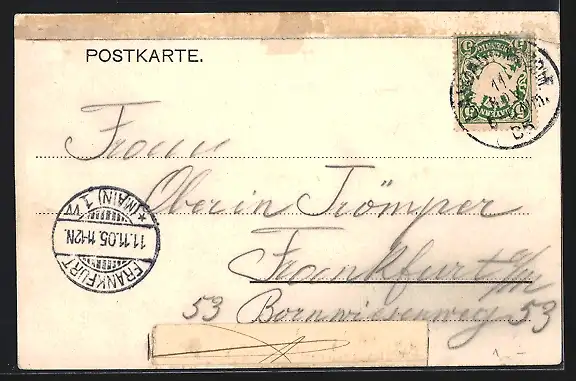 POSTKARTE.
Frau
Oberin Trömper
Frankfurt a/M
53 Bornwiesenweg 53
FRANKFURT
* (MAIN) 1 VV
11.11.05. 11-12N.